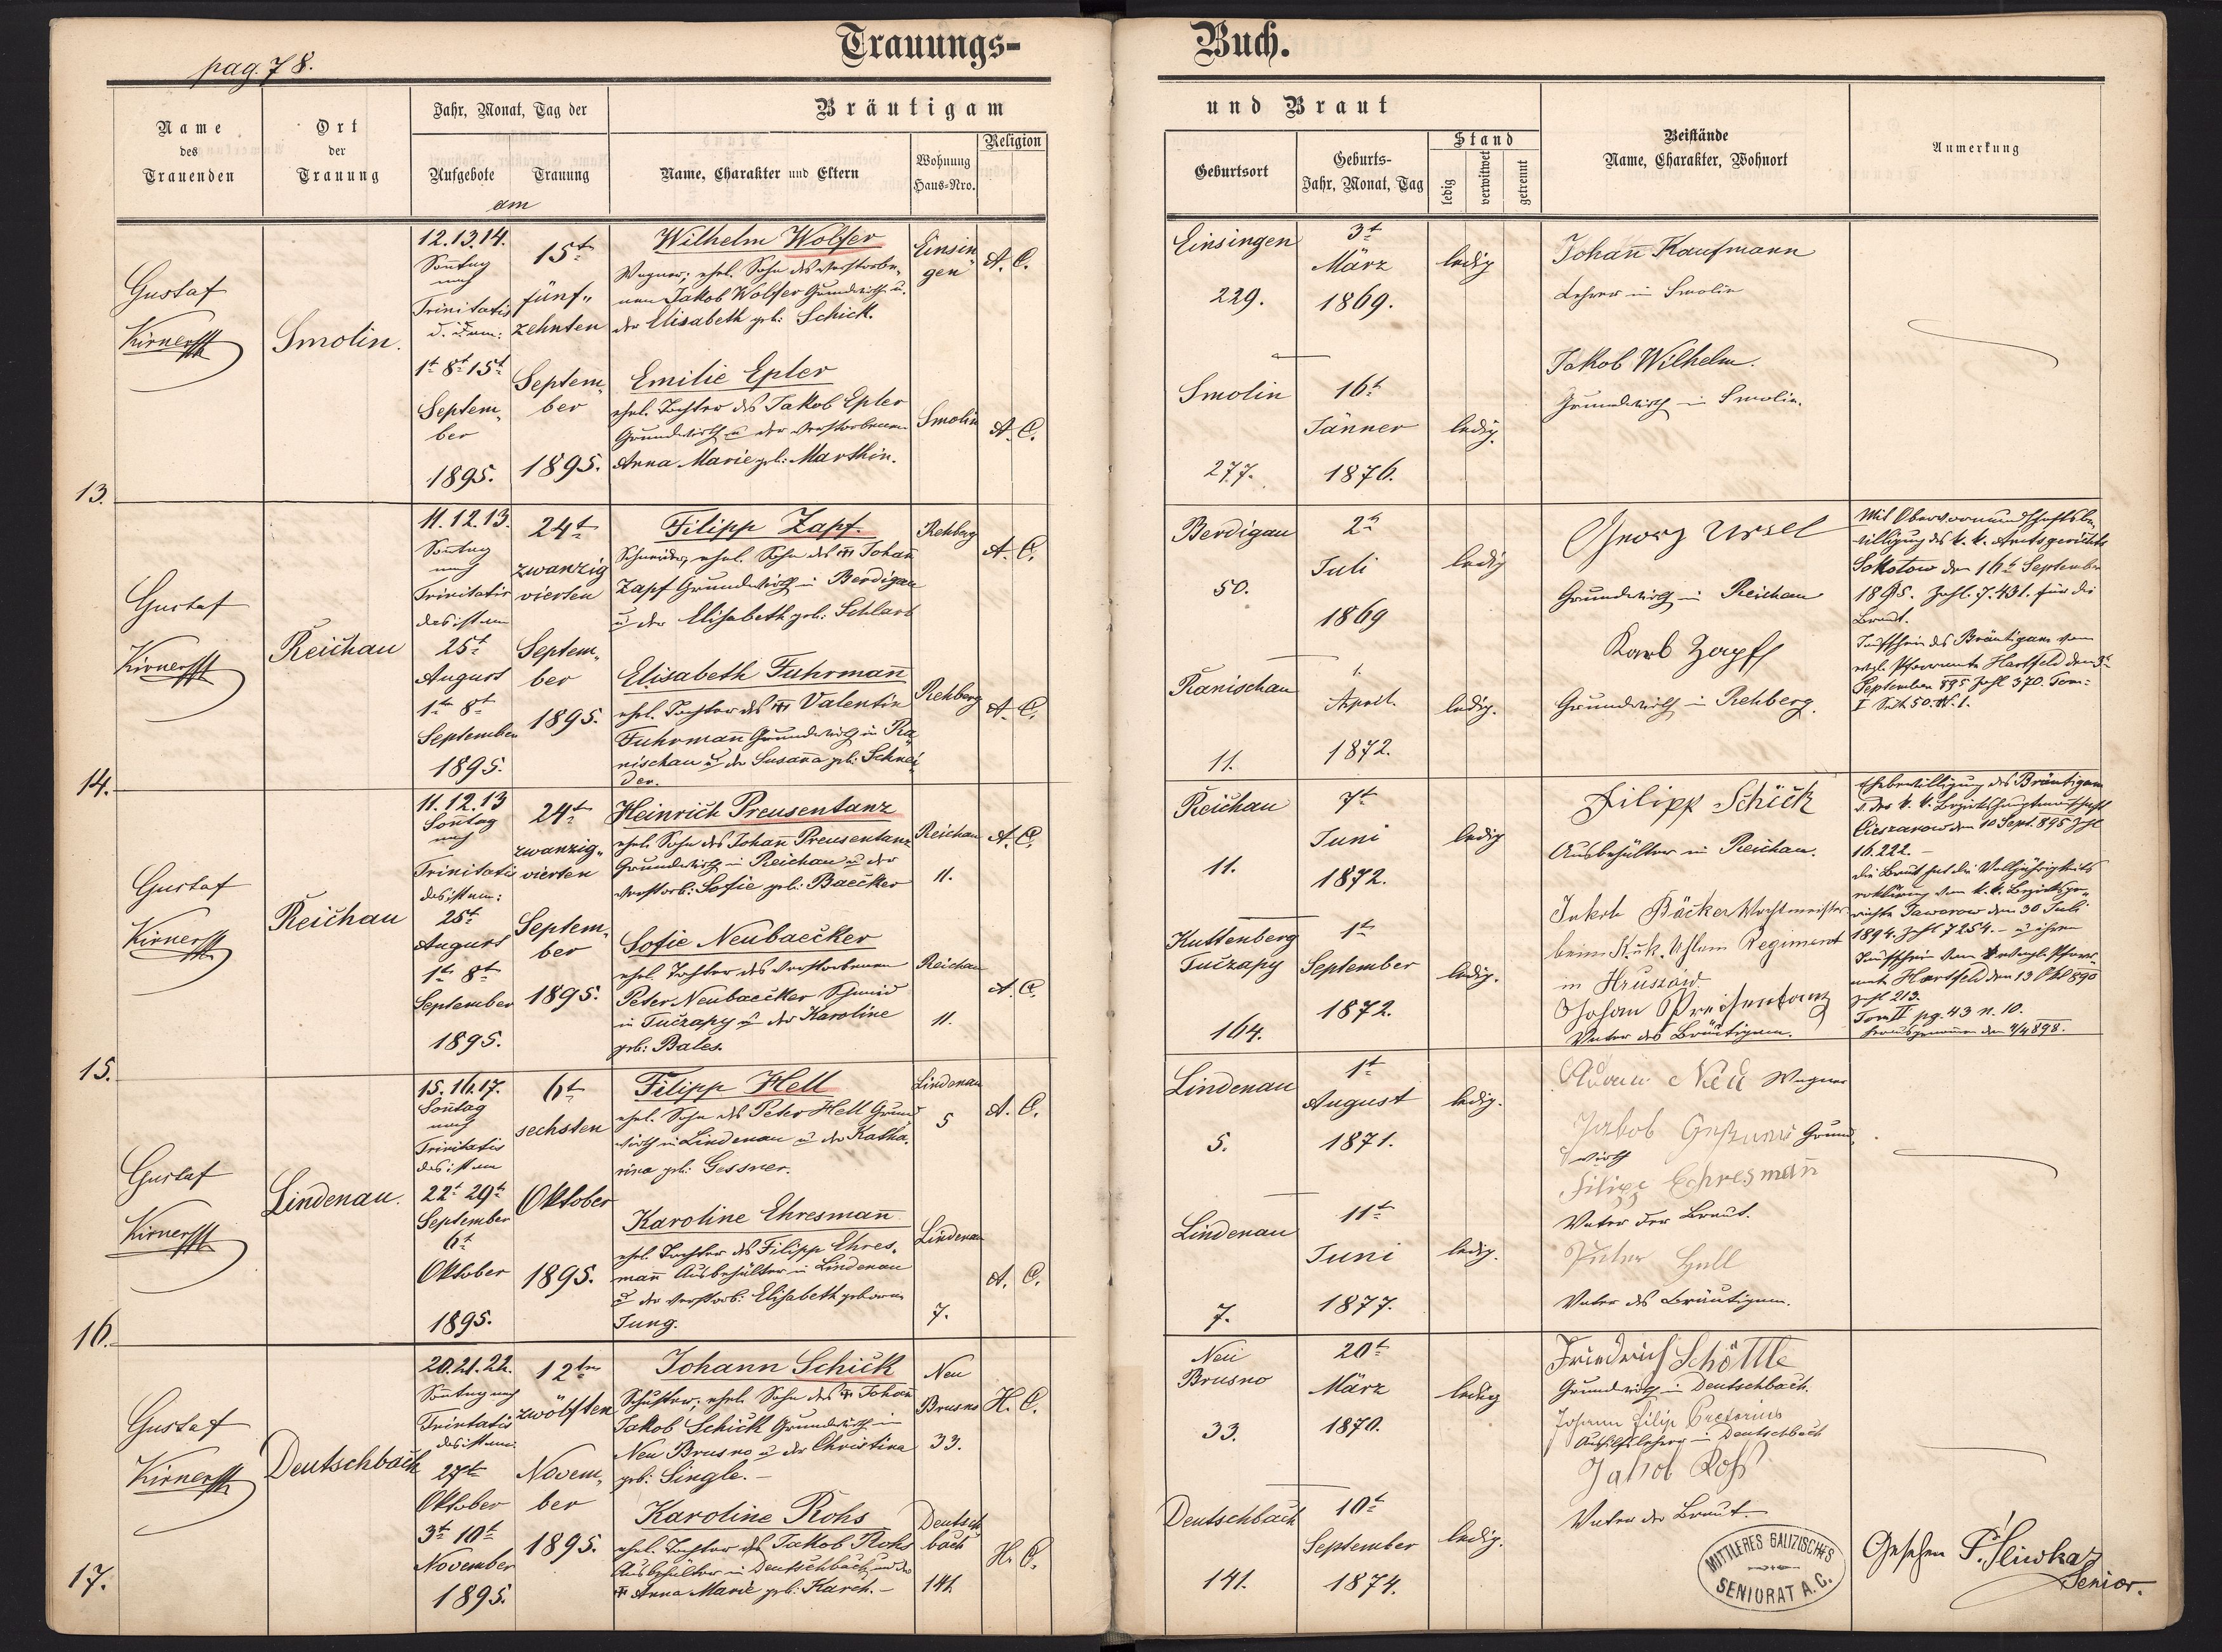 Trauungs-
Buch.
pag. 78.
Name
des
Trauenden
Ort
der
Trauung
Jahr, Monat, Tag der
Aufgebote
Trauung
am
Bräutigam
Name, Charakter und Eltern
Wohnung
Haus-Nro.
Religion
und Braut
Geburtsort
Geburts-
Jahr, Monat, Tag
Stand
ledig
verwitwet
getrennt
Beistände
Name, Charakter, Wohnort
Anmerkung
13.
Gustaf
Kirner
Smolin.
12. 13. 14.
Sonntag
nach
Trinitatis
1t 8t 15t
Septem-
ber
1895.
15t
fünf-
zehnten
Septem-
ber
1895.
Wilhelm Wolfer
Wagner; ehel. Sohn des verstorbe-
nen Jakob Wolfer Grundwirth u.
der Elisabeth geb: Schick.
Einsin-
gen
A. C.
Emilie Epler
ehel. Tochter des Jakob Epler
Grundwirth u der verstorbenen
Anna Marie geb: Marthin.
Smolin
A. C.
Einsingen
229.
3t
März
1869.
ledig
Smolin
277.
16t
Jänner
1876.
ledig.
Johañ Kaufmann
Lehrer in Smolin
Jakob Wilhelm.
Grundwirth in Smolin.
14.
Gustaf
Kirner
Reichau
11. 12. 13.
Sonntag
nach
Trinitatis
das ist am
25t
August
1t 8t
September
1895.
24t
zwanzig
vierten
Septem-
ber
1895.
Filipp Zapf.
Schneider, ehel. Sohn des Johañ
Zapf Grundwirth in Berdigau
u der Elisabeth geb: Schlarb
Rehberg
A. C.
Elisabeth Fuhrmañ
ehel. Tochter des Valentin
Fuhrmañ Grundwirth in Ra-
nischau u der Susaña geb: Schnei-
der.
Rehberg
A. C.
Berdigau
50.
2t
Juli
1869
ledig
Ranischau
11.
1.
April.
1872.
ledig.
Georg Ursel
Grundwirth in Reichau
Karl Zapf
Grundwirth in Rehberg.
Mit Obervormundschaftsbe-
willigung des k. k. Amtsgerichts
Sokotow den 16t September
1895. Zahl. 7.431. für die
Braut.
Taufschein des Bräutigams vom
evgl. Pfarramte Hartfeld den 3t
September 895 Zahl 370. Tom:
I Seite 50. N. 1.
15.
Gustaf
Kirner
Reichau
11. 12. 13
Soñtag
nach
Trinitatis
das ist am:
25t
August
1t 8t
September
1895.
24t
zwanzig-
vierten
Septem-
ber
1895.
Heinrich Preusentanz
ehel. Sohn des Johañ Preusentanz
Grundwirth in Reichau u der
verstorb: Sofie geb: Baecker
Reichau
11.
A. C.
Sofie Neubaecker
ehel. Tochter des verstorbenen
Peter Neubaecker Schmied
in Tuczapy u der Karoline
geb: Bales.
Reichau
11.
A. C.
Reichau
11.
7t
Juni
1872.
ledig
Kuttenberg
Tuczapy
164.
1t
September
1872.
ledig.
Filipp Schick
Ausbehälter in Reichau.
Jakob Bäcker Wachtmeister
beim K. u. k. Uhlan Regiment
in Hruszów.
Johan Preisentanz
Vater des Bräutigam.
Ehebewilligung des Bräutigam
v. der k. k. Bezirkshauptmannschaft
Cieszanow den 10 Sept. 895 Zhl
16.222.
die Braut hat die Volljährigkeits
erklärung vom k. k. Bezirksge-
richte Jaworow den 30 Juli
1894. Zahl 7254. – u ihren
Taufschein vom evangl. Pfarr-
amte Hartfeld den 13 Okt 890
Zahl 213.
Tom II pg. 43 n. 10.
16.
Gustaf
Kirner
Lindenau.
15. 16. 17.
Soñtag
nach
Trinitatis
das ist am
22t 29t
September
6t
Oktober
1895.
6t
sechsten
Oktober
1895.
Filipp Hell
ehel. Sohn des Peter Hell Grund-
wirth in Lindenau u der Katha-
rina geb: Gessner.
Lindenau
5
A. C.
Karoline Ehresmañ
ehel. Tochter des Filipp Ehres-
mañ Ausbehälter in Lindenau
u der verstorb: Elisabeth geborne
Jung.
Lindenau
7.
A. C.
Lindenau
5.
1t
August
1871.
ledig.
Lindenau
7.
11t
Juni
1877.
ledig.
Wagner
Jakob Grund-
wirth
Filipp Ehresmañ
Vater der Braut.
Peter Hell
Vater des Bräutigam.
17.
Gustaf
Kirner
Deutschbach
20. 21. 22.
Sonntag nach
Trinitatis
das ist am:
27t
Oktober
3t 10t
November
1895.
12ten
zwölften
Novem-
ber
1895.
Johann Schick
Schuster; ehel. Sohn des Johañ
Jakob Schick Grundwirth in
Neu Brusno u der Christina
geb: Single. –
Neu
Brusno
33.
H. C.
Karoline Rohs
ehel. Tochter des Jakob Rohs
Ausbehälter in Deutschbach und der
Anna Marie geb: Karch. –
Deutsch
bach
141.
H. C.
Neu
Brusno
33.
20t
März
1870.
ledig
Deutschbach
141.
10t
September
1874.
ledig.
Friedrich Schöttle
Grundwirth in Deutschbach.
Johann Filip Pretorius
Aushilfslehrer in Deutschbach
Jakob Roß
Vater der Braut.
MITTLERES GALIZISCHES
SENIORAT A. C.
Gesehen
Senior.